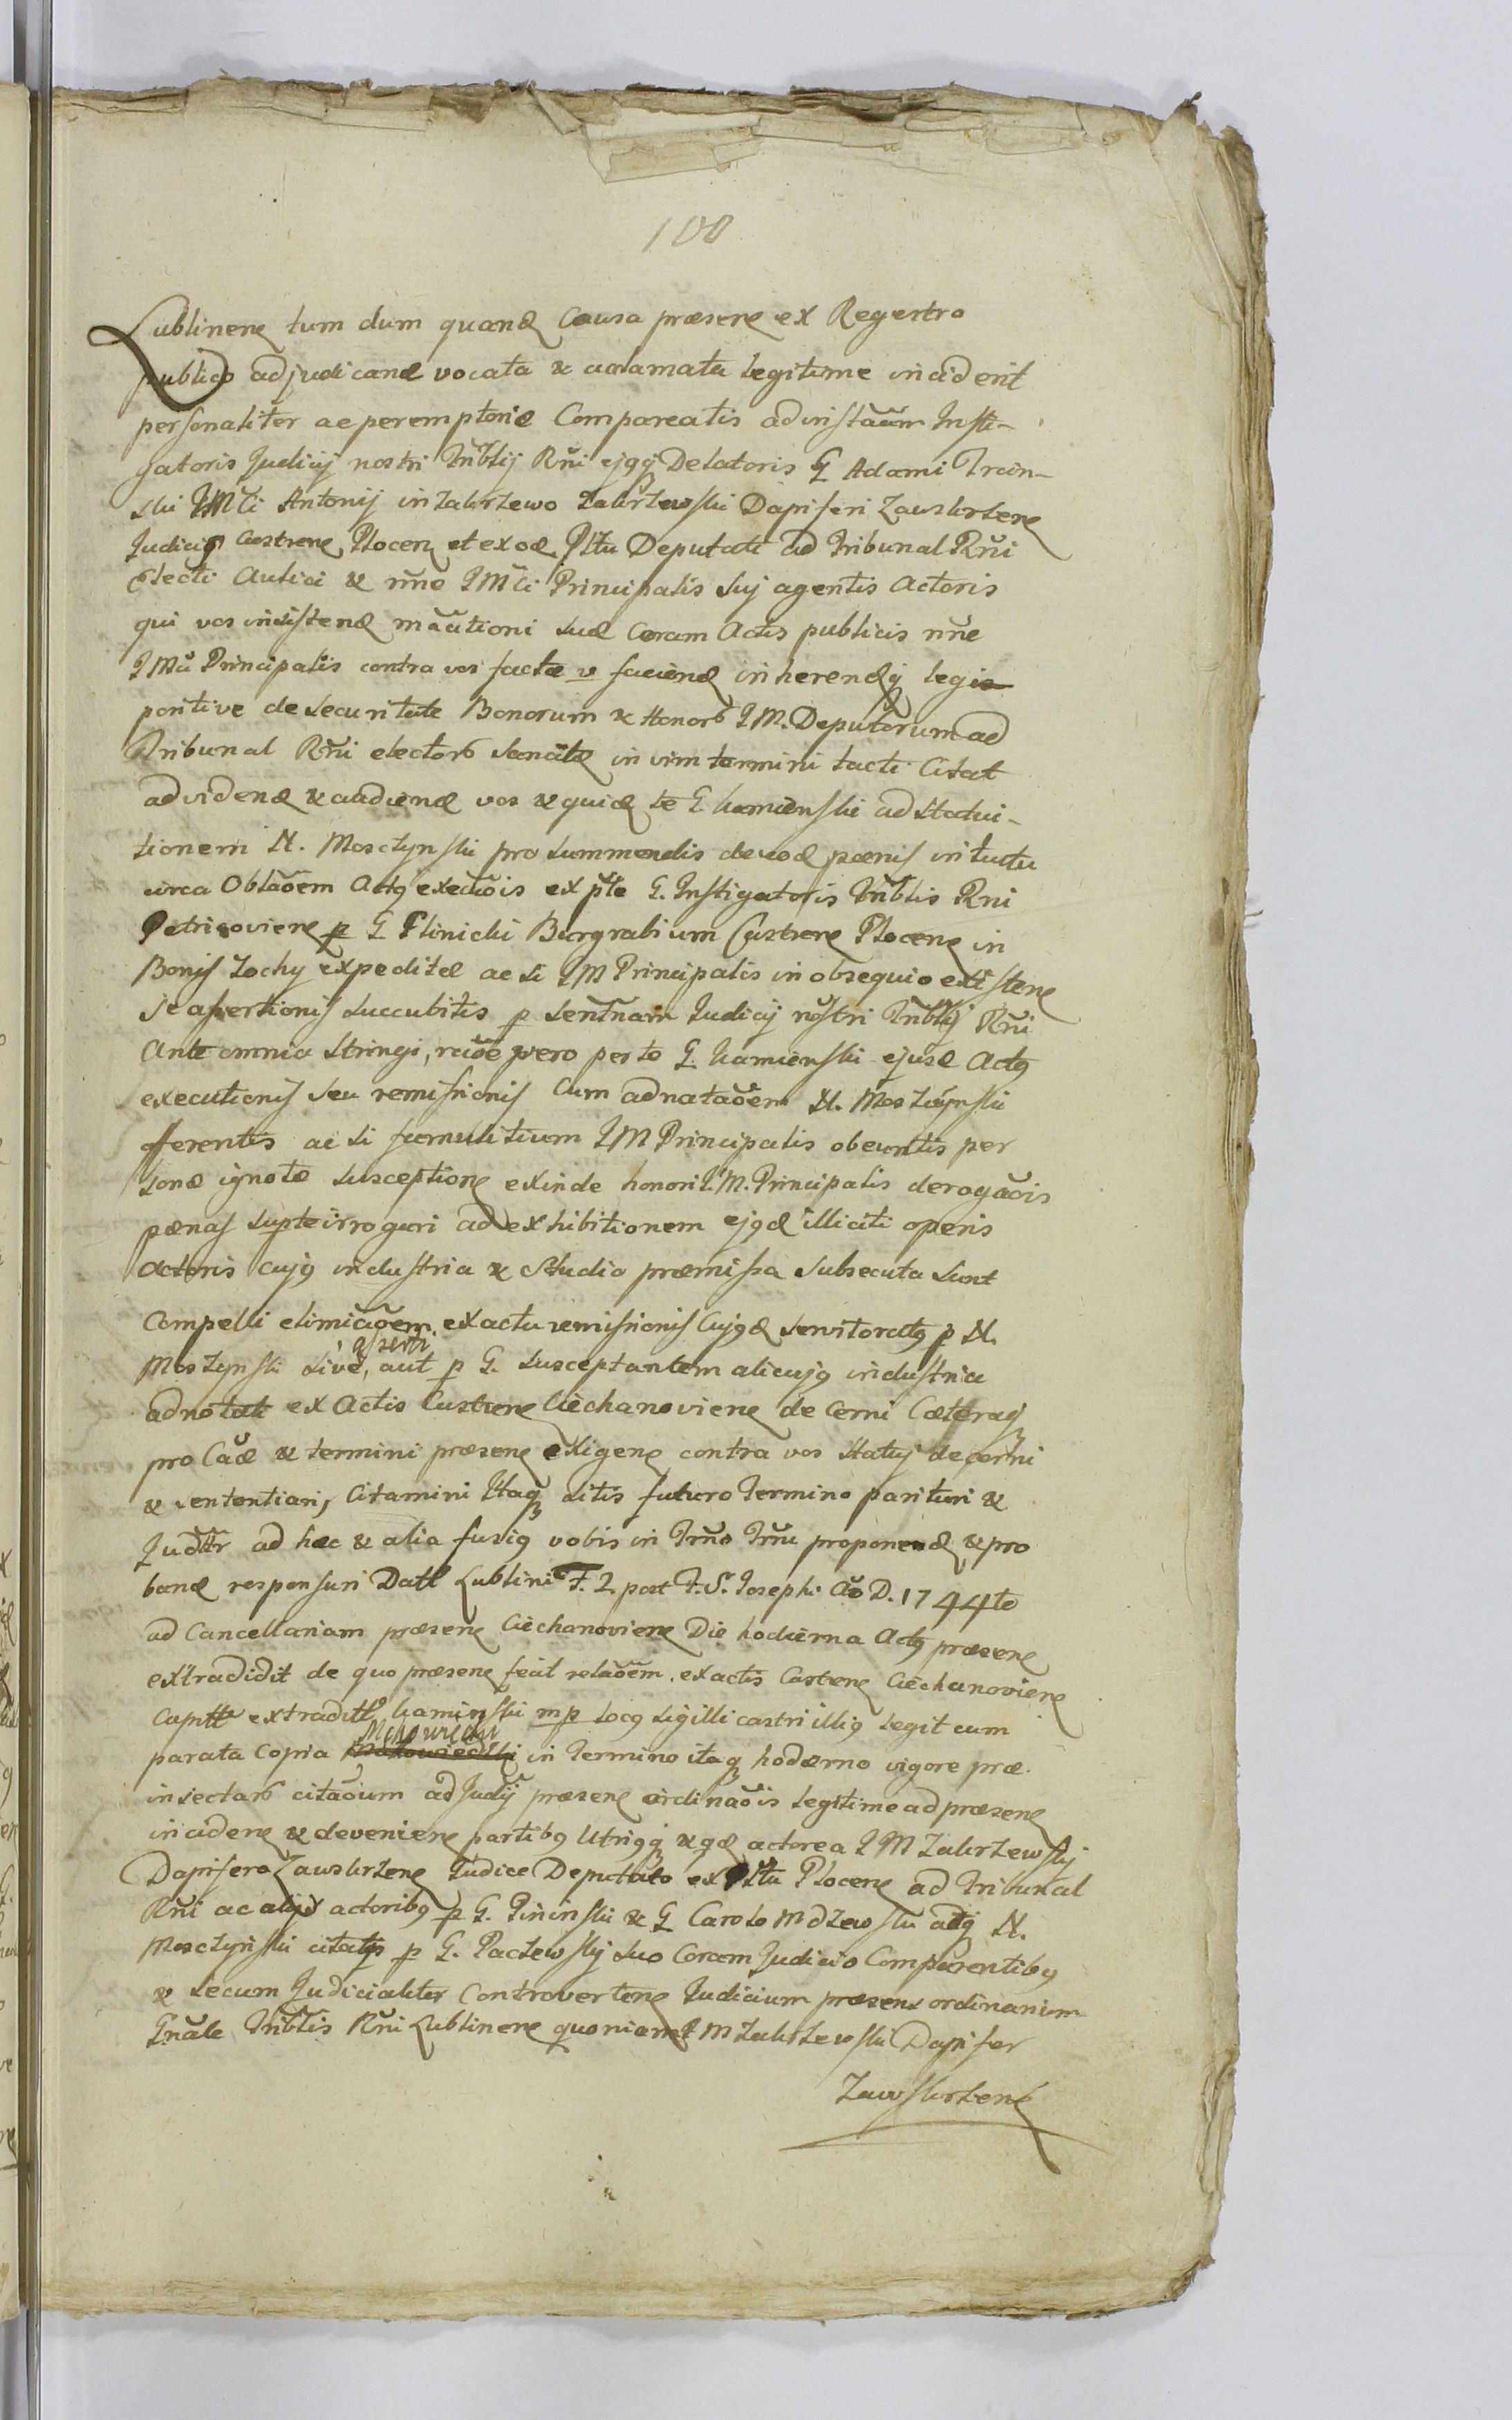 100
Lublinen tum dum quand Causa præsens ex Regestro
publico adjudicand vocata & acclamata legitime inciderit
personaliter ac peremptorie Compareatis ad instãam Insti-
gatoris Judicij nostri Trĩblij Rñi ejqz Delatoris G Adami Train-
ski IMci Antonij in Zakrzewo Zakrzewski Dapiferi Zawskrzen
Judicis Castren Plocen et ex od Pltu Deputati ad Tribunal Rñi
Electi Aulici & nñe IMci Principalis sui agentis Actoris
qui vos insistend mãutioni suæ Coram Actis publicis nñe
IMci Principalis contra vos factæ v faciend inherendqz legis
positive de securitate Bonorum & Honorб IM. Deputorum ad
Tribunal Rñi electorб sancitæ in vim termini tacti Citat
ad videnđ & audienđ vos & quiđ te G. Kamienski ad statui-
tionem N. Mosczynski pro summendis de eod pœnis intuitu
circa Oblãoem Actq execũois ex pte G. Instigatoris Trĩblis Rni
Petricovien p G Flinicki Burgrabium Castren Plocen in
Bonis Zochy expeditæ ac si IM Principalis in obsequio existens
se assertionis succubitis p sentñam Judicij nostri Trĩblij Rñi
Ante omnia stringi, rãoe vero per te G. Kamienski ejusđ Actq
executionis seu remissionis Cum adnotãoem N. Moszczynski
fferentis ac si famulitium IM Principalis obeuntis per
sonæ ignotæ susceptione exinde honori I.M. Principalis derogãois
pænas sup te irrogari ad exhibitionem ejqđ illiciti operis
Actoris cujq industria & studio præmissa subsecuta sunt
Compelli eliminãoem ex actu remissionis Cujqđ servitoratq p N.
Moszynski sive asserti, aut p G. susceptantem alicujq industria
adnotati ex Actis Castren Ciechanovien decerni Cæteraqz
pro Caũđ & termini præsen exigen contra vos statuj decerni
& sententiari, Citamini Itaqz sitis futuro Termino parituri &
Judtr ad hæc & alia fusiq vobis in Trñno Trñu proponenđ & pro
banđ responsuri Datt Lublini F. 2 post F. S. Josephi Aõ D. 1744to
ad Cancellariam præsen Ciechanovien Die hodierna Actq præsen
extradidit de quo præsen fecit relãoem. ex actis Castren Ciechanovien
Captt extraditt Kaminski mp Locq sigilli castri illiq legit cum
parata Copia in Termino itaqz hodierno vigore præ
insectarб citãoum ad Judij præsen ordinãois legitime ad præsen
inciden & devenien partibq Utriqqz & qđ actorea IM Zakrzewskj
Dapifero Zawskrzen Judice Deputato ex Pltu Plocen ad Tribunal
Rñi ac alijs actoribq p G. Pininski & G Carolo Mdzewski atqz N.
Mosczynski citatq p G. Paczewskj suo Coram Judicio Comparentibq
& secum Judicialiter Controverten Judicium præsens ordinarium
Gñale Trĩblis Rñi Lublinen quoniam IM Zakrzewski Dapifer
Zawskrzen